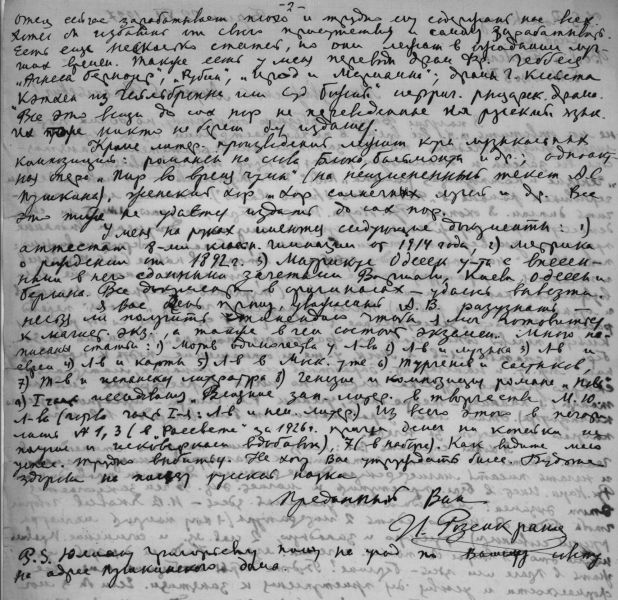 - 2 -
отец сейчас зарабатывает плохо и трудно ему содержать нас всех.
Хотел бы избавить от своего присутствия и самому зарабатывать.
Есть еще несколько статей, но они лежат в ожидании луч-
ших времен. Также есть у меня перевод драм Фр. Геббеля
"Агнеса Бернауэр", "Рубин", "Ирод и Мариамна"; драма Г. Клейста
Кэтхен из Гейльбронна или суд божий" истрич. рыцарск. драма.
Все это вещи до сих пор не переведенные на русский язык.
Их тоже никто не берет для издания.
Кроме литер. произведений лежит куча музыкальных
композиций: романсы на слова Блока, Бальмонта и др.; одноакт-
ная опера "Пир во время чумы" (на неизмененный текст А.С.
Пушкина), женский хор "Хор солнечных лучей" и др. Все
это тоже не удается издать до сих пор.
У меня на руках имеются следующие документы: 1)
аттестат 8-ми классн. гимназии от 1914 года, 2) метрика
о рождении от 1892 г. 3) Матрикул Одесск. у-та с внесен-
ными в него сданными зачетами Варшавы, Киева, Одессы и
Берлина. Все документы в оригиналах – удалось вывезти.
Я Вас очень прошу, уважаемый А. В. разузнать –
нельзя ли получить стипендию чтобы я мог готовиться
к магист. экз., а также в чем состоит экзамен. Много на-
писаны статьи: 1) Мотив одиночества у Л-ва 2) Л-ва и музыка 3) Л-в и
евреи 4) Л-в и карты 5) Л-в в Моск. ун-те 6) Тургенев и
7) Т-в и испанскую литература 8) Генезис и композиция романа "Новь"
9) I часть исследования "Влияние зап. литер. в творчестве М. Ю.
Л-ва (первая часть I-я: Л-в и нем. литер.) Из всего этого в печать
№ 1, 3 (в "Рассвете" за 1926 г. причем денег ни копейки не
получил и исковеркали вдобавок), 7 (в наборе). Как видите мало
успех. трудно выбиться. Не хочу Вас утруждать более. Будьте
здоровы на пользу русской науке
Преданный Вам
И. Розенкранц
P.S. Юлиану Григорьевичу пишу не раз по Вашему совету
на адрес Пушкинского дома.